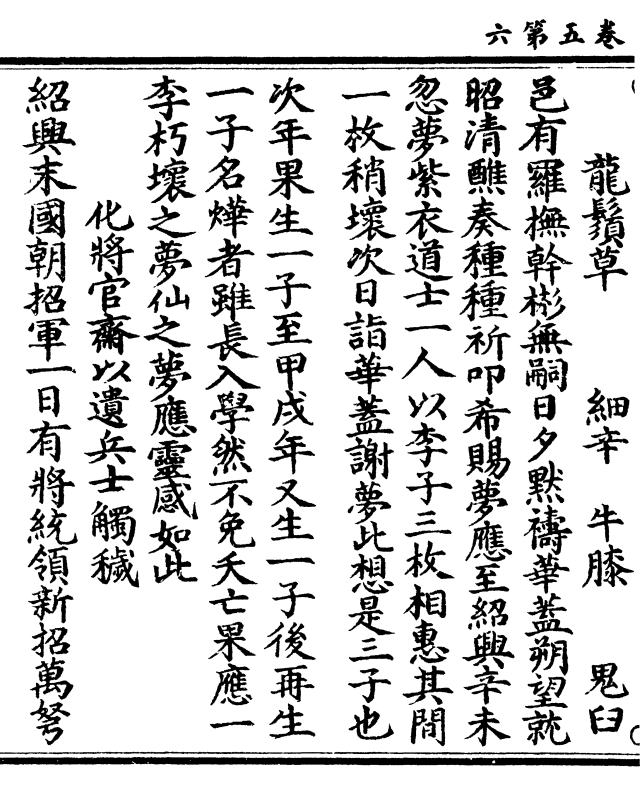 卷五第六
龍鬚草 細辛 牛膝 鬼臼
邑有羅撫幹彬無嗣日夕默禱華蓋朔望就
昭清醮奏種種祈叩希賜夢應至紹興辛未
忽夢紫衣道士一人以李子三枚相惠其間
一枚稍壞次日詣華蓋謝夢此想是三子也
次年果生一子至甲戌年又生一子後再生
一子名燁者雖長入學然不免夭亡果應一
李朽壞之夢仙之夢應靈感如此
化將官齋以遺兵士觸穢
紹興末國朝招軍一日有將統領新招萬弩